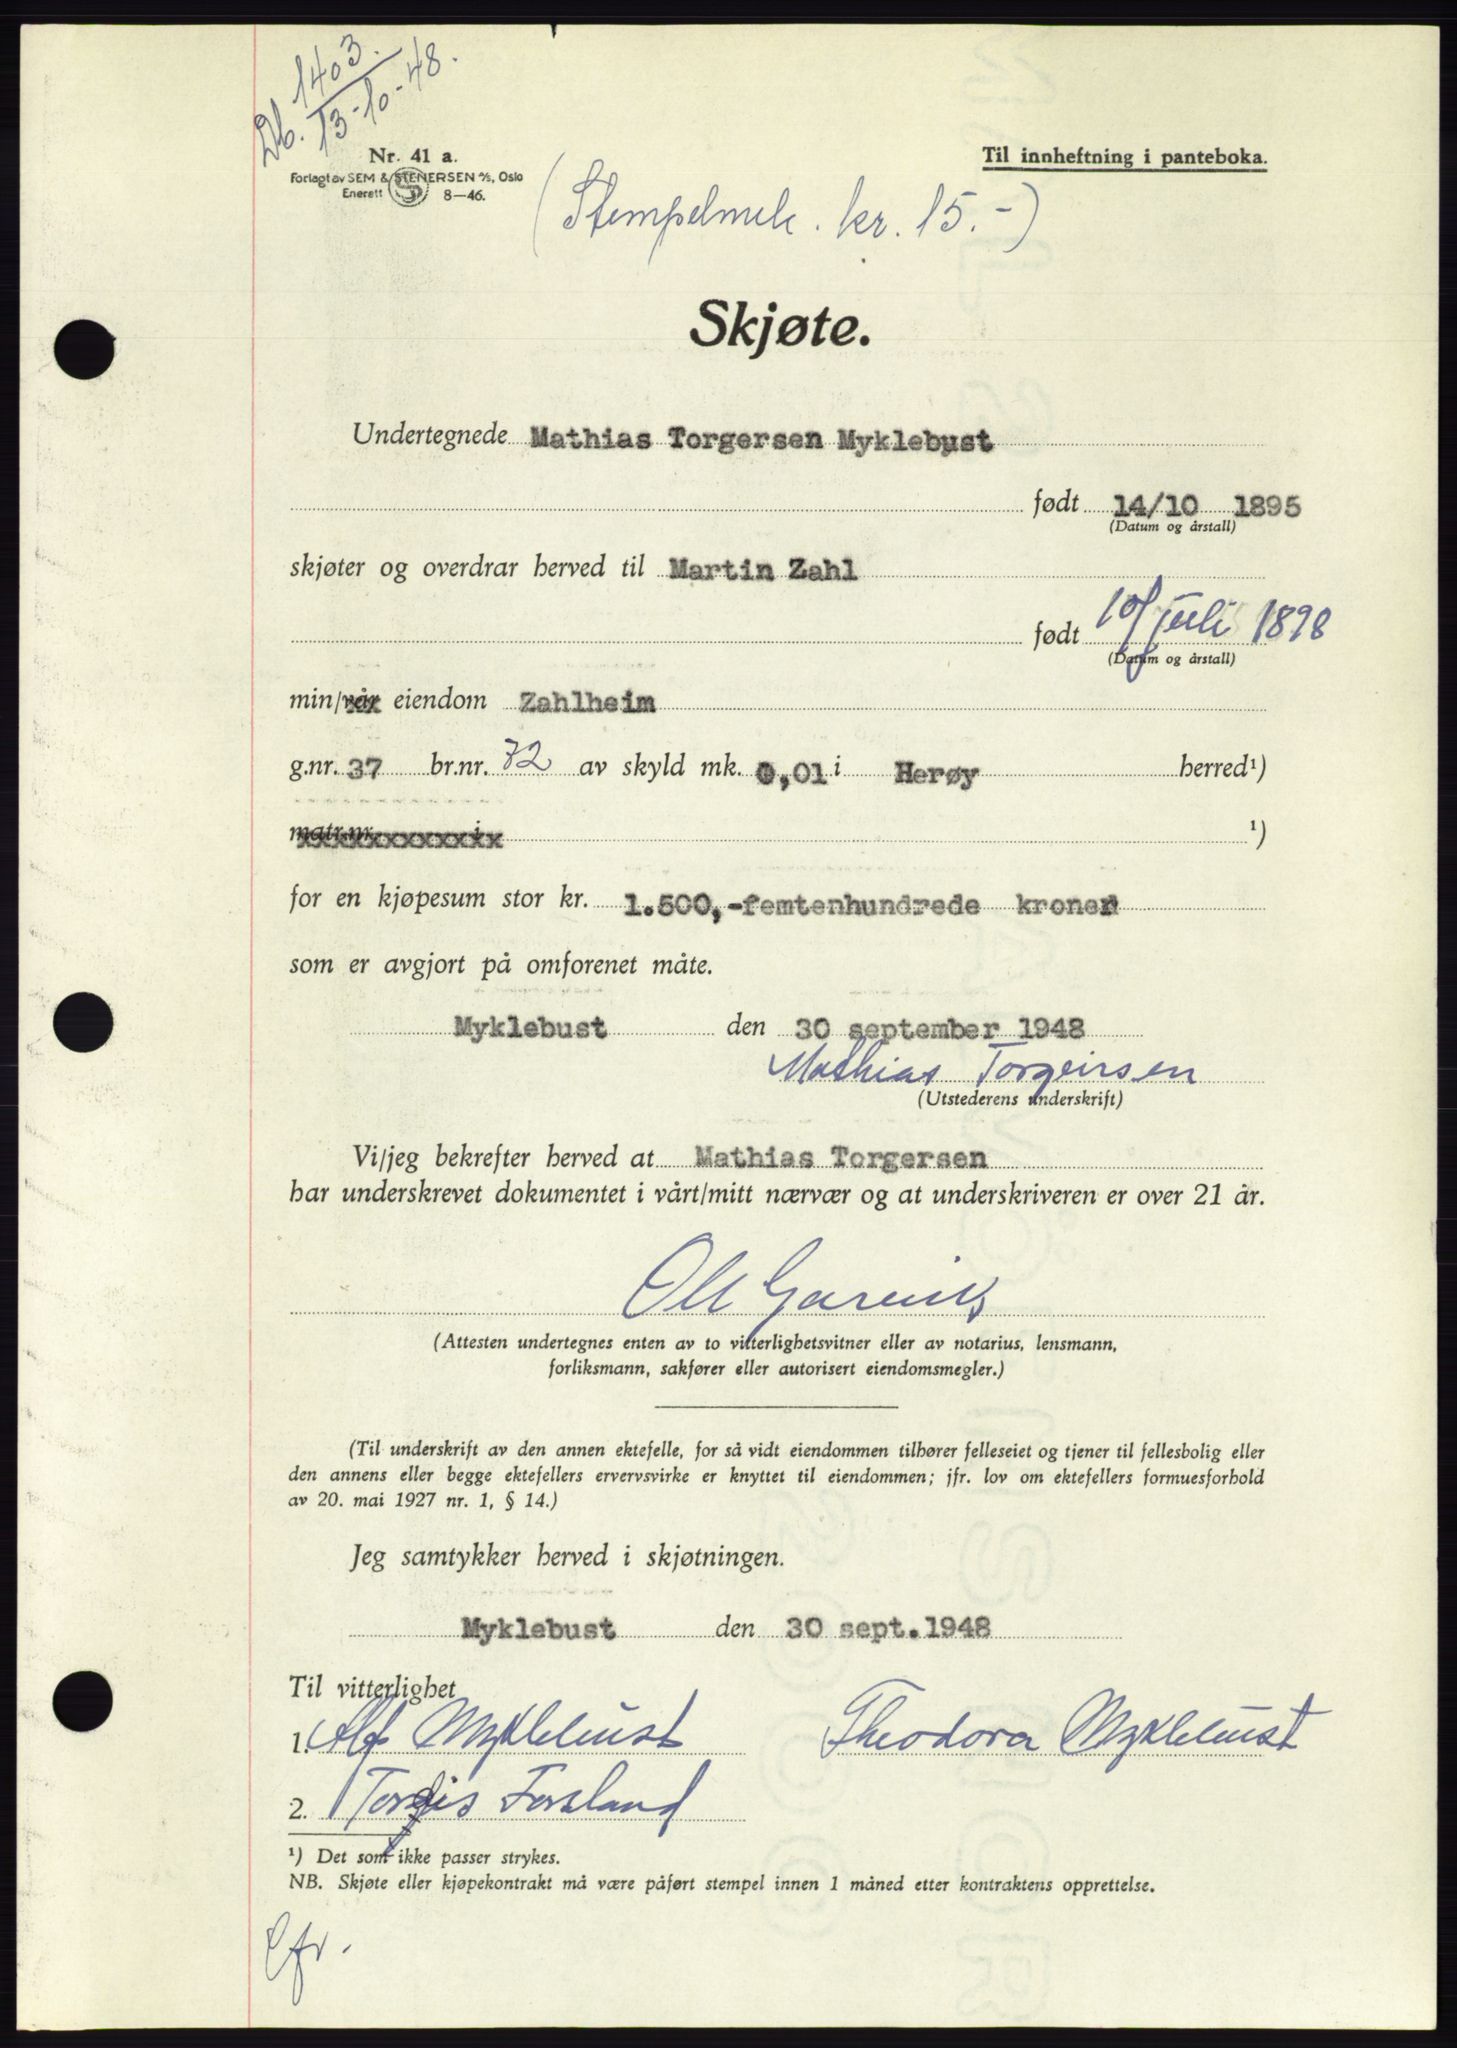 Db. 1403. / 13-10-48.
Nr. 41 a.
Forlagt av SEM & STENERSEN A/S, Oslo
Enerett 8—46.
Til innheftning i panteboka.
(Stempelmrk. kr. 15.-)
Skjøte.
Undertegnede Mathias Torgersen Myklebust
født 14/10 1895
(Datum og årstall)
skjøter og overdrar herved til Martin Zahl
født 10/juli 1898
(Datum og årstall)
min/vår eiendom Zahlheim
g.nr. 37 br.nr. 72 av skyld mk. 0,01 i Herøy herred¹)
matr.nr. i ¹)
for en kjøpesum stor kr. 1.500,-femtenhundrede kroner
som er avgjort på omforenet måte.
Myklebust den 30 september 1948
Mathias Torgeirsen
(Utstederens underskrift)
Vi/jeg bekrefter herved at Mathias Torgersen
har underskrevet dokumentet i vårt/mitt nærvær og at underskriveren er over 21 år.
Ole Garvik
(Attesten undertegnes enten av to vitterlighetsvitner eller av notarius, lensmann,
forliksmann, sakfører eller autorisert eiendomsmegler.)
(Til underskrift av den annen ektefelle, for så vidt eiendommen tilhører felleseiet og tjener til fellesbolig eller
den annens eller begge ektefellers ervervsvirke er knyttet til eiendommen; jfr. lov om ektefellers formuesforhold
av 20. mai 1927 nr. 1, § 14.)
Jeg samtykker herved i skjøtningen.
Myklebust den 30 sept. 1948
Til vitterlighet
1. Alf Myklebust Theodora Myklebust
2. Tordis Forsland
¹) Det som ikke passer strykes.
NB. Skjøte eller kjøpekontrakt må være påført stempel innen 1 måned etter kontraktens opprettelse.